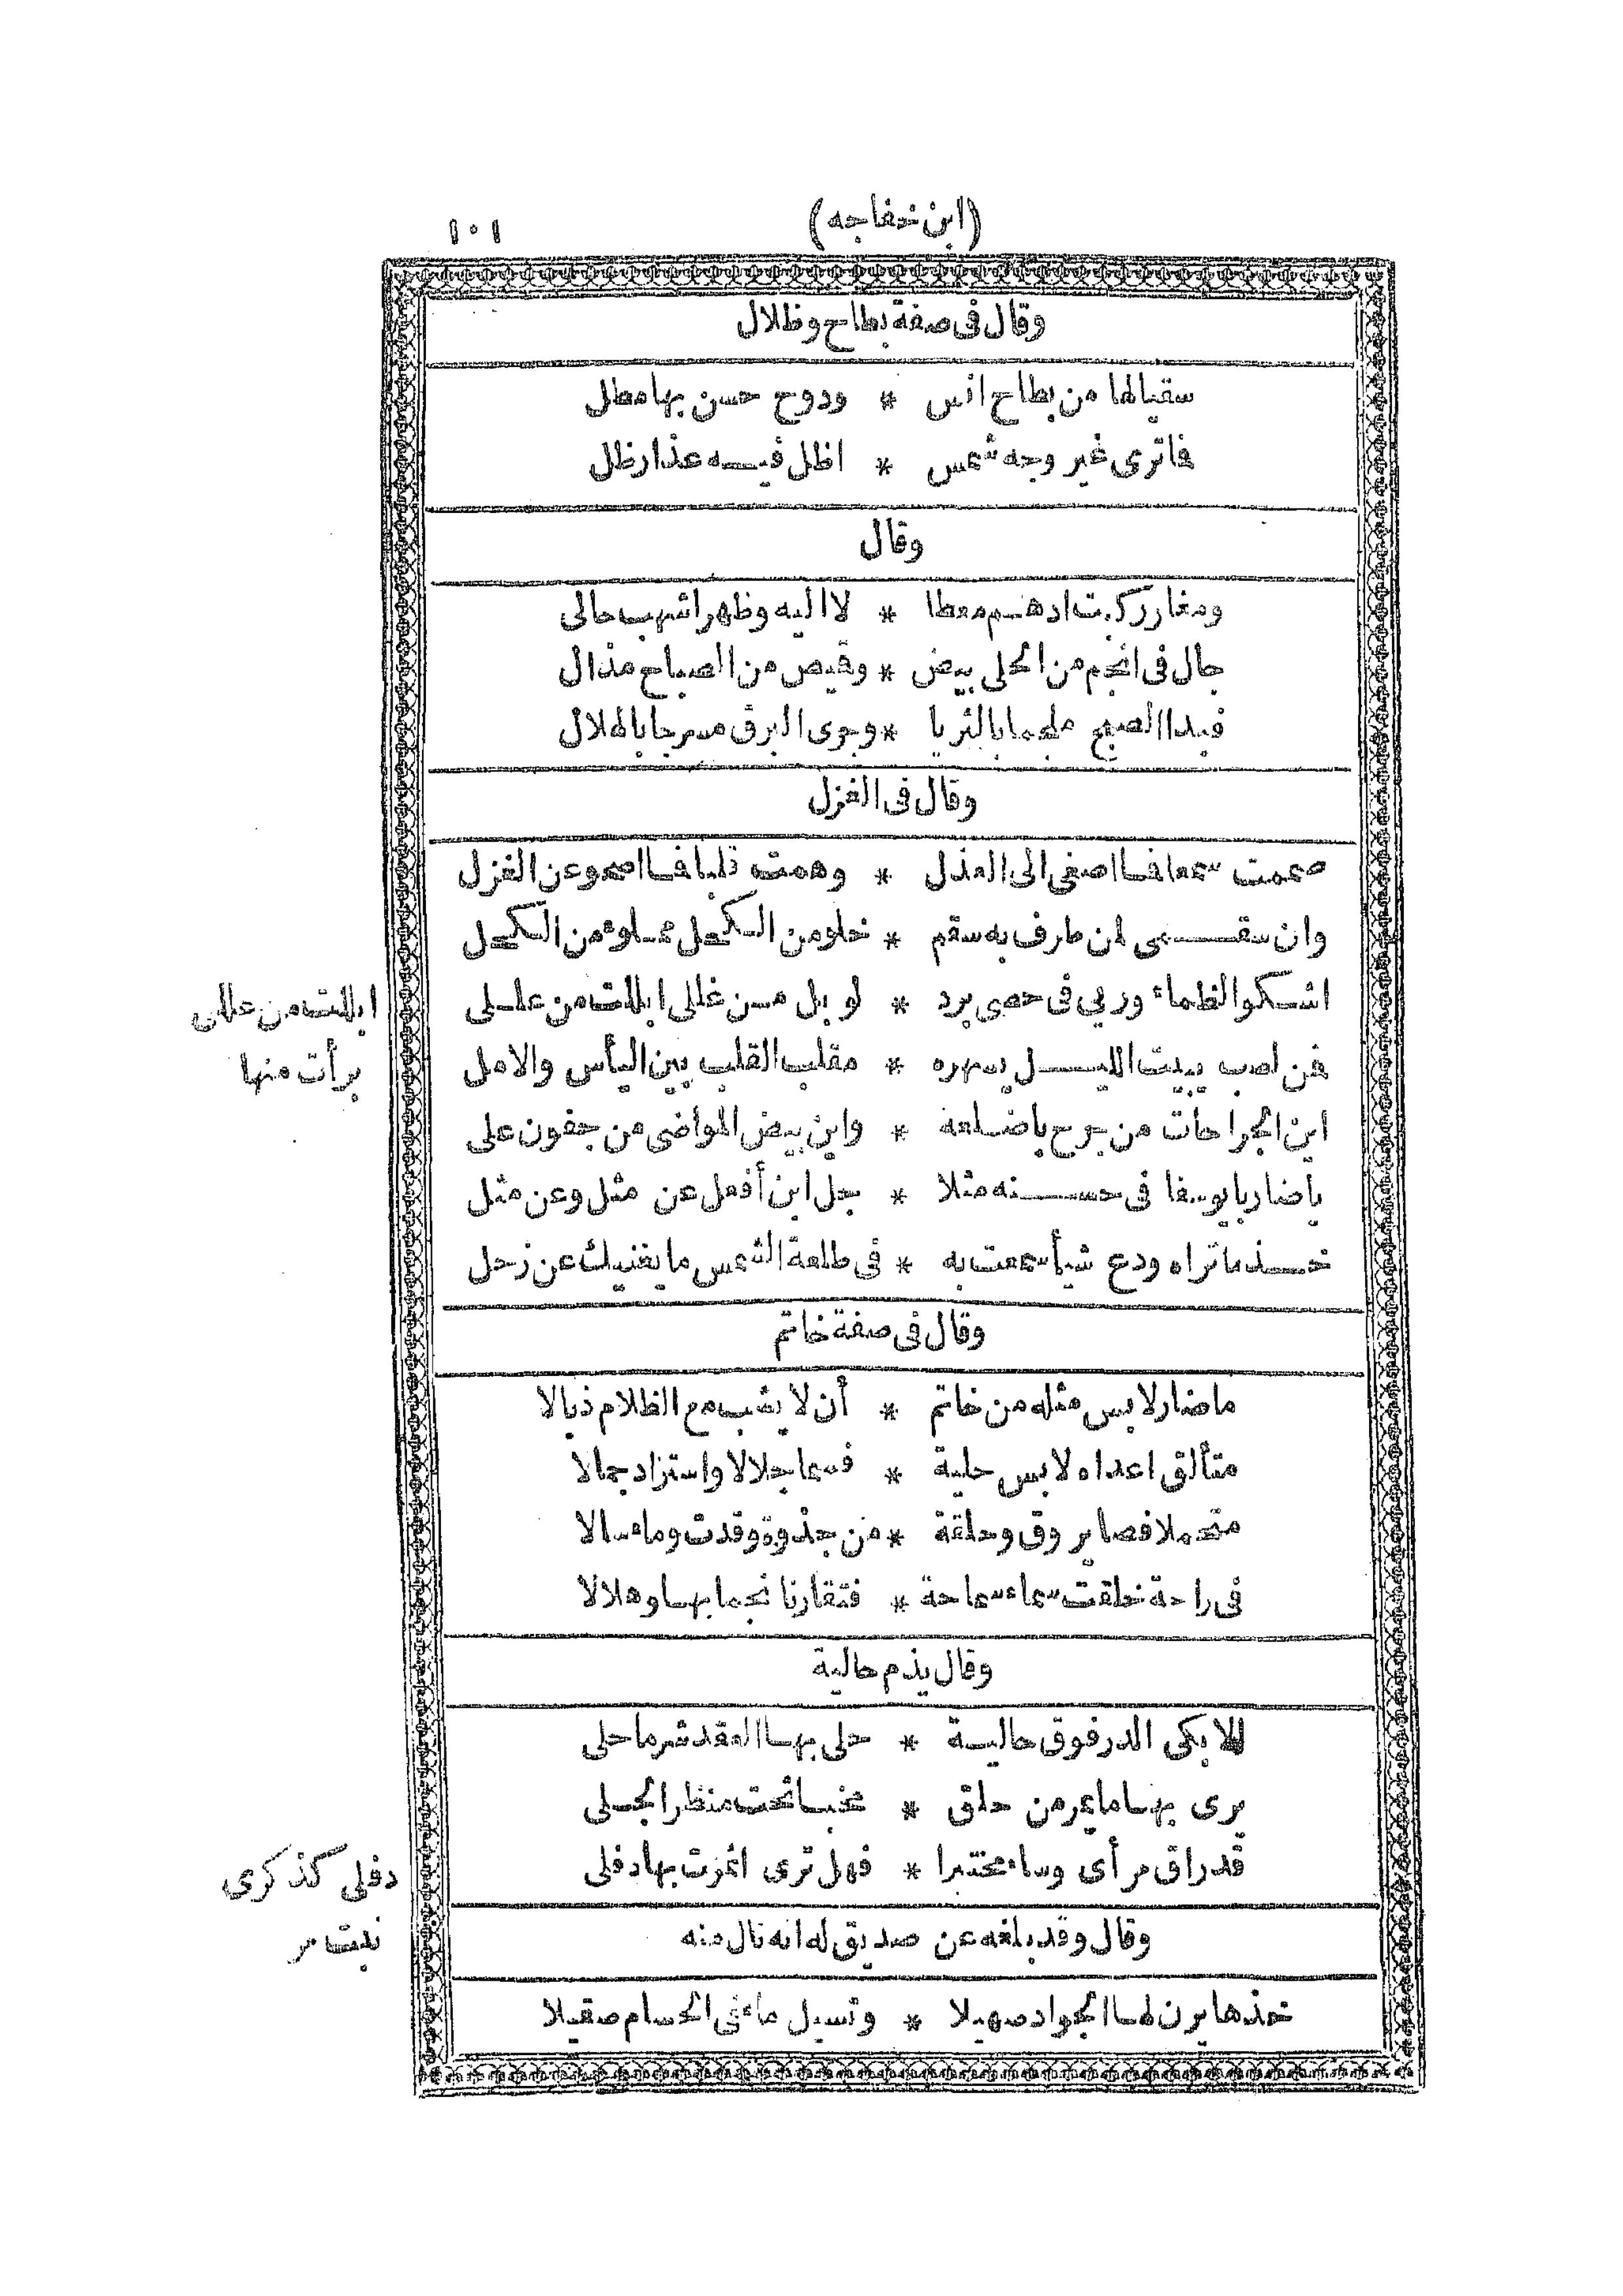 (ابن خفاجه)
١٠١
وقال فى صفة بطاح وظلال
سقيالها من بطاح انس * ودوح حسن بها مطل
فاترى غير وجه شمس * اظل فيه عذار ظل
وقال
ومغار ركبت ادهم معطا * لا اليه وظهر اشهب حالى
جال فى انجم من الحلى بيض * وقيص من الصباح مذال
فبدا الصبح ملجما بالثريا * وجرى البرق مسرجا بالهلال
وقال فى الغزل
صممت سمعا فما اصغى الى العذل * وهمت قلبا فما اصحو عن الغزل
وان سقمى لمن طرف به سقم * خلو من الكحل مملوء من الكحل
اشكو الظماء وريى فى حصى برد * لو بل من غللى ابللت من عللى
فمن لصب يبيت الليل يسهره * مقلب القلب بين اليأس والامل
اين الجراحات من جرح باضلعه * واين بيض المواضى من جفون على
ياضاربا يوسفا فى حسنه مثلا * جل ابن أفعل عن مثل وعن مثل
خذ ماتراه ودع شيأ سمعت به * فى طلعة الشمس ما يغنيك عن زحل
ابللت من عللى
برأت منها
وقال فى صفة خاتم
ماضار لابس مثله من خاتم * أن لا يشب مع الظلام ذبالا
متألق اعداه لابس حلية * فسما جلالا واستزاد جمالا
متحملا فصا يروق وحلقة * من جذوة وقدت وماء سالا
فى راحة خلقت سماء سماحة * فتقارنا نجما بها وهلالا
وقال يذم حالية
للا بكى الدر فوق حالية * حلى بها العقد شر ما حلى
يرى بها ما يمر من خلق * مخبا تحت منظر الجلى
قد راق مرأى وساء مختبرا * فهل ترى اثمرت بها دفلى
دفلى كذكرى
نبت مر
وقال وقد بلغه عن صديق له انه نال منه
خذها يرن لها الجواد صهيلا * وتسيل ماء فى الحسام صقيلا